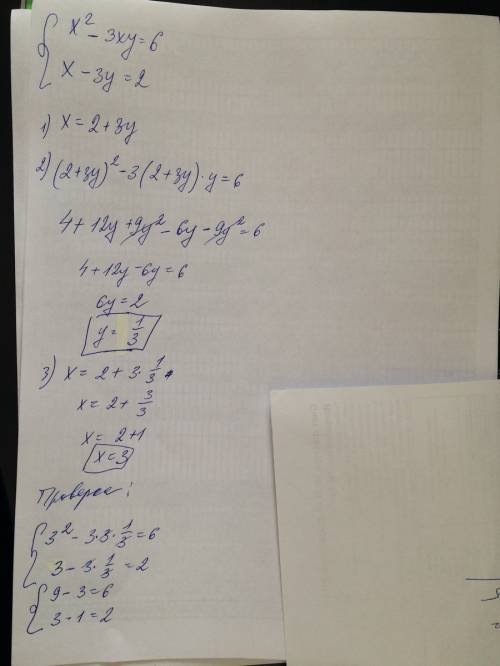 x² - 3xy = 6
x - 3y = 2
1) x = 2 + 3y
2) (2+3y)² - 3(2+3y)·y = 6
4 + 12y + 9y² - 6y - 9y² = 6
4 + 12y - 6y = 6
6y = 2
y = 1/3
3) x = 2 + 3·1/3
x = 2 + 3/3
x = 2+1
x = 3
3² - 3·3·1/3 = 6
3 - 3·1/3 = 2
9 - 3 = 6
3 - 1 = 2